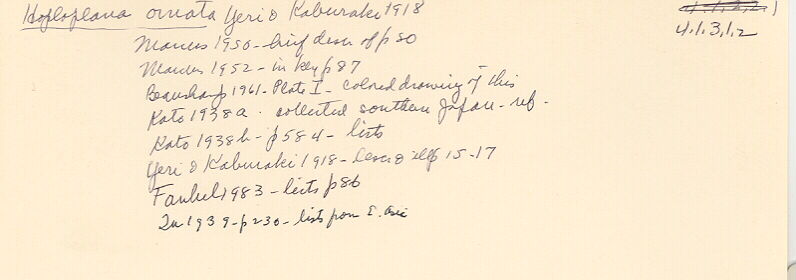 Hoploplana ornata Yeri & Kaburaki 1918
4.1.3.1.2
Marcus 1950 - brief descr of p 80
Marcus 1952 - in key p 87
Beauchamp 1961 - Plate I - colored drawing of this
Kato 1938a - collected southern Japan - ref -
Kato 1938b - p 584 - lists
Yeri & Kaburaki 1918 - descr & illf 15-17
Faubel 1983 - lists p 86
1939 - p 230 - lists from E. Asia